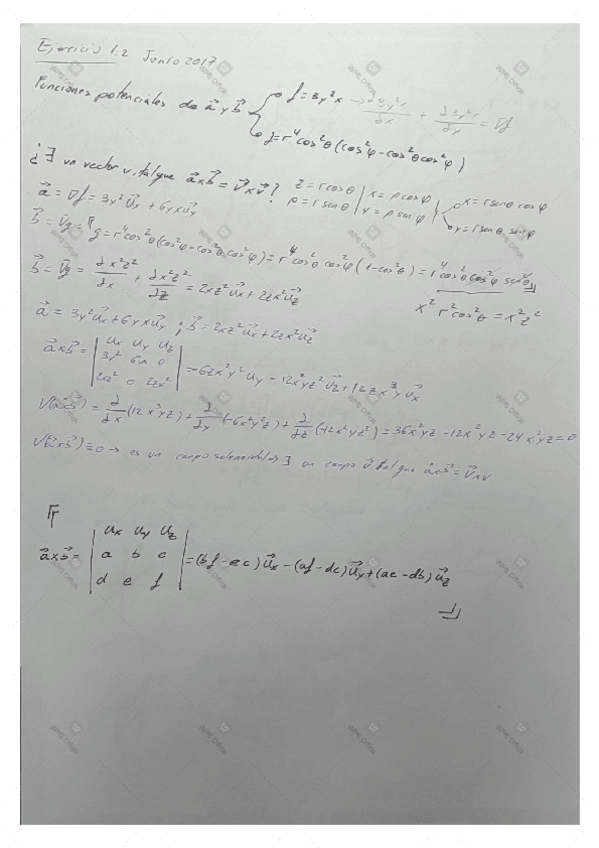 Ejercicio 1.2 Junio 2017
Funciones potenciales de a⃗ y b⃗ f = 3y²x → ∂3y²x/∂x + ∂3y²x/∂y = ∇f
g = r⁴cos²θ(cos²φ-cos²θcos²φ)
¿∃ un vector v, tal que a⃗xb⃗ = ∇⃗xv⃗? z = rcosθ | x = ρcosφ | x = rsenθcosφ
ρ = rsenθ | y = ρsenφ | y = rsenθ senφ
a⃗ = ∇f = 3y²u⃗x + 6yxu⃗y
b⃗ = ∇g = g = r⁴cos²θ(cos²φ-cos²θcos²φ) = r⁴cos²θcos²φ(1-cos²θ) = r⁴cos²θcos²φ sen²θ
x²r²cos²θ = x²z²
b⃗ = ∇g = ∂x²z²/∂x + ∂x²z²/∂z = 2xz²u⃗x + 2zx²u⃗z
a⃗ = 3y²u⃗x + 6yxu⃗y ; b⃗ = 2xz²u⃗x + 2zx²u⃗z
a⃗xb⃗ = | ux uy uz
3y² 6yx 0
2xz² 0 2zx² | = -6zx²y²uy - 12x²yz²u⃗z + 12zx³yu⃗x
∇(a⃗xb⃗) = ∂/∂x(12x³yz) + ∂/∂y(-6x²y²z) + ∂/∂z(-12x²yz²) = 36x²yz - 12x²yz - 24x²yz = 0
∇(a⃗xb⃗) = 0 → es un campo solenoidal → ∃ un campo v⃗ tal que a⃗xb⃗ = ∇⃗xv
a⃗xb⃗ = | ux uy uz
a b c
d e f | = (bf - ec)u⃗x - (af - dc)u⃗y + (ae - db)u⃗z